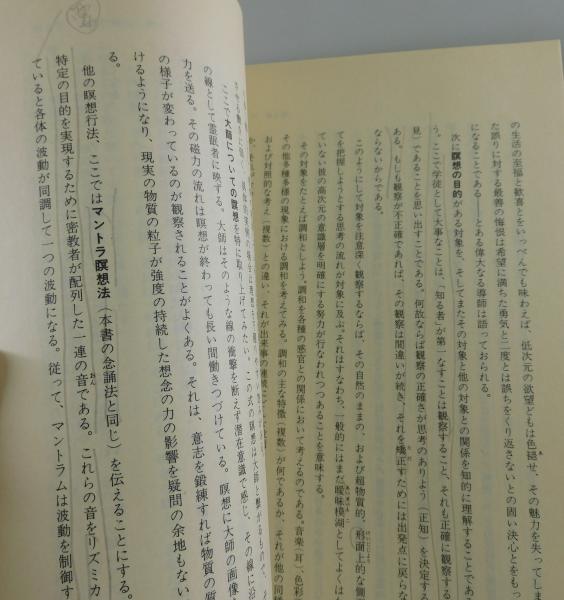 の生活の至福と歓喜とをいっぺんでも味わえば、低次元の欲望どもは色褪せ、その魅力を失ってしま
た誤りに対する最善の悔悛は希望に満ちた勇気と二度とは誤ちをくり返さないとの固い決心とをもっ
になることである――とある偉大なる導師は語っておられる。
次に瞑想の目的がある対象を、そしてまたその対象と他の対象との関係を知的に理解することであ
う。ここで学徒として大事なことは、「知る者」が第一なすことは観察すること、それも正確に観察する
見」であることを思い出すことである。何故ならば観察の正確さが思考のありよう(正知)を決定する
ある。もしも観察が不正確であれば、その観察は間違いが続き、それを矯正すためには出発点に戻らな
ならないからである。
このようにして対象を注意深く観察するならば、その自然のままの、および超物質的、(形而上的な)個
てを把握しようとする思考の流れが対象に及ぶ。それはすなわち、一般的にはまだ曖昧模湖としてよくは
ていない彼の高次元の意識層を明確にする努力が行なわれつつあることを意味する。
その対象をたとえば調和としよう。調和を各種の感官との関係において考えるのである。音楽(耳)、色彩
その他多種多様の現象における調和を考えてみる。調和の主な特徴(複数)が何であるか、それが他の同種
および対照的な考え(複数)との違い、それが出来事の継続
ここで大師についての瞑想を特に取り上げてみたい。この式の瞑想は大師と
の線として霊眼者に映ずる。大師はそのような線の衝撃を断えず潜在意識で感じ、その線に沿
力を送る。その磁力の流れは瞑想が終わっても長い間働きつづけている。瞑想に大師の画像
の様子が変わっているのが観察されることがよくある。それは、意志を鍛練すれば物質の質
けるようになり、現実の物質の粒子が強度の持続した想念の力の影響を疑問の余地もない
る。
他の瞑想行法、ここではマントラ瞑想法(本書の念誦法と同じ)を伝えることにする。
特定の目的を実現するために密教者が配列した一連の音である。これらの音をリズミカ
ていると各体の波動が同調して一つの波動になる。従って、マントラムは波動を制御す